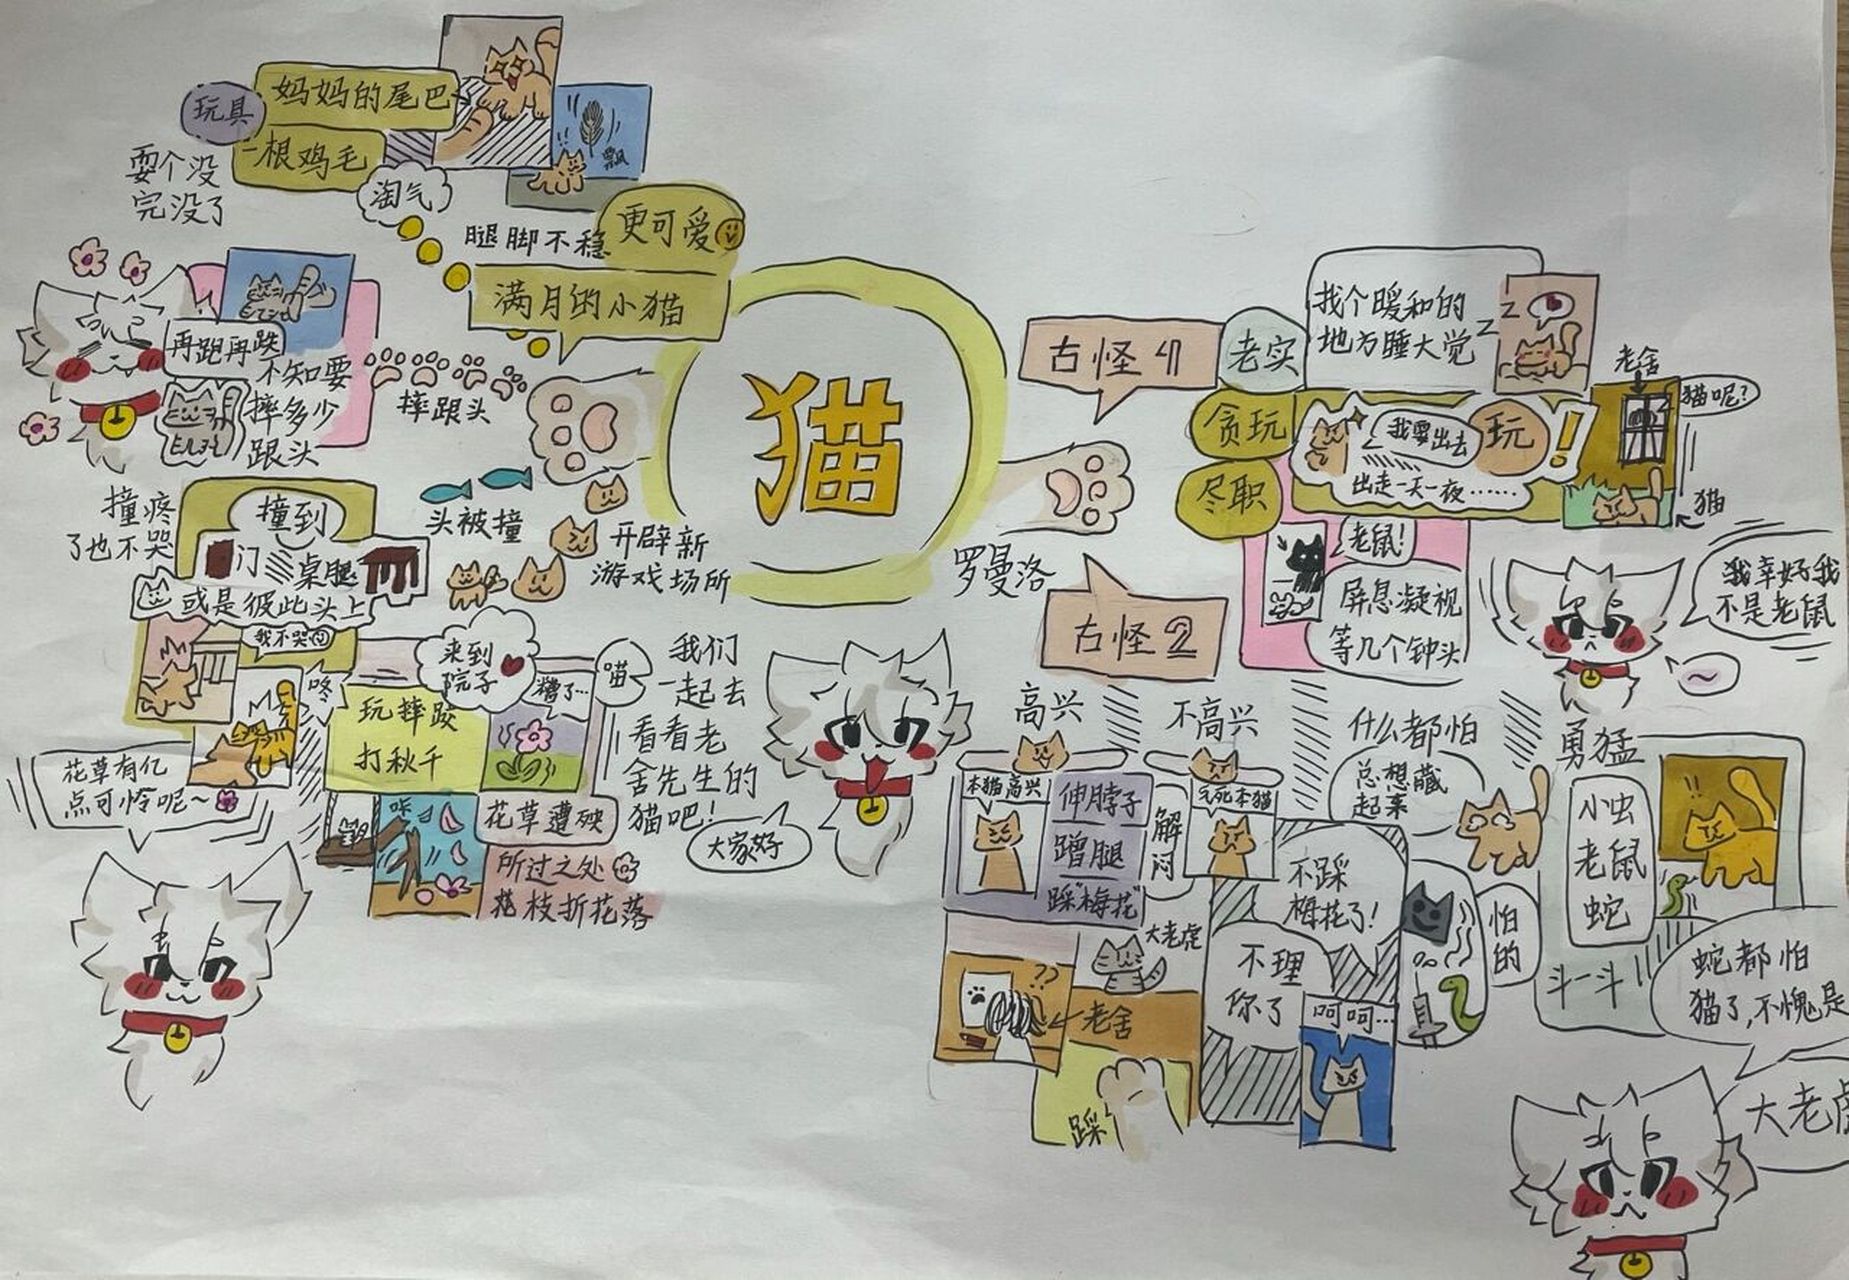 猫
罗曼洛
满月的小猫
腿脚不稳
更可爱
淘气
玩具
妈妈的尾巴
一根鸡毛
飘
耍个没
完没了
摔跟头
再跑再跌
不知要
摔多少
跟头
头被撞
撞疼
了也不哭
撞到
门
桌腿
或是彼此头上
我不哭
咚
开辟新
游戏场所
来到
院子
玩摔跤
打秋千
糟了…
喵
咔
花草遭殃
所过之处
花枝折花落
花草有亿
点可怜呢～
我们
一起去
看看老
舍先生的
猫吧！
大家好
古怪1
老实
找个暖和的
地方睡大觉
z
z
贪玩
我要出去
玩
！
出走一天一夜……
老舍
猫呢？
猫
尽职
老鼠！
屏息凝视
等几个钟头
我幸好我
不是老鼠
～
古怪2
高兴
本猫高兴
伸脖子
蹭腿
踩"梅花"
解闷
大老虎
??
老舍
踩
不高兴
气死本猫
不踩
梅花了！
不理
你了
呵呵…
什么都怕
总想藏
起来
怕的
勇猛
小虫
老鼠
蛇
!!
斗一斗
蛇都怕
猫了,不愧是
大老虎